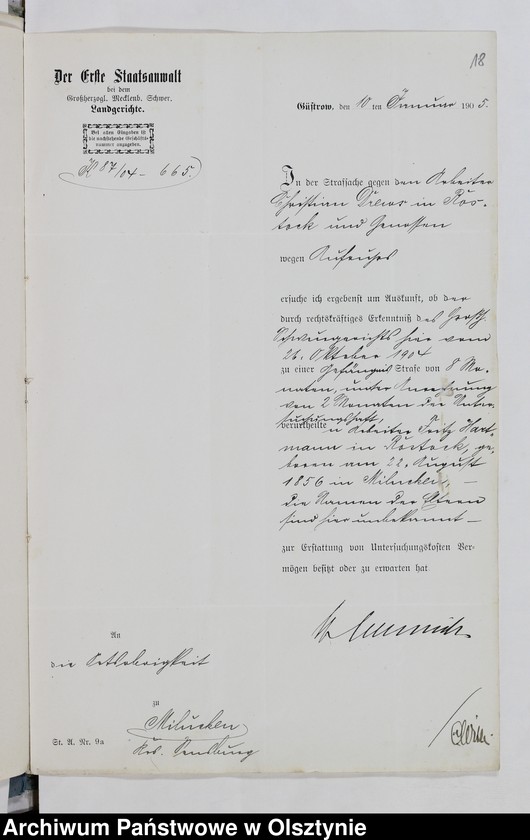 18
Der Erste Staatsanwalt
bei dem
Großherzogl. Mecklenb. Schwer.
Landgerichte.
Bei allen Eingaben ist
die nachstehende Geschäfts-
nummer anzugeben.
87/04 - 665.
Güstrow, den 10 ten Januar 1905.
In der Strafsache gegen den Arbeiter
Christian Drews in Ros-
tock und Genossen
wegen Aufruhrs
ersuche ich ergebenst um Auskunft, ob der
durch rechtskräftiges Erkenntniß des Großh.
Schwurgerichts hier vom
26. Oktober 1904
zu einer Gefängniß Strafe von 8 Mo-
naten, unter Anrechnung
von 2 Monaten der Unter-
suchungshaft,
verurtheilte Arbeiter Fritz Hart-
mann in Rostock, ge-
boren am 22. August
1856 in Milucken, -
die Namen der Eltern
sind hier unbekannt -
zur Erstattung von Untersuchungskosten Ver-
mögen besitzt oder zu erwarten hat
An
die Ortsobrigkeit
zu
Milucken
Krs. Sensburg
St. A. Nr. 9a
Archiwum Państwowe w Olsztynie